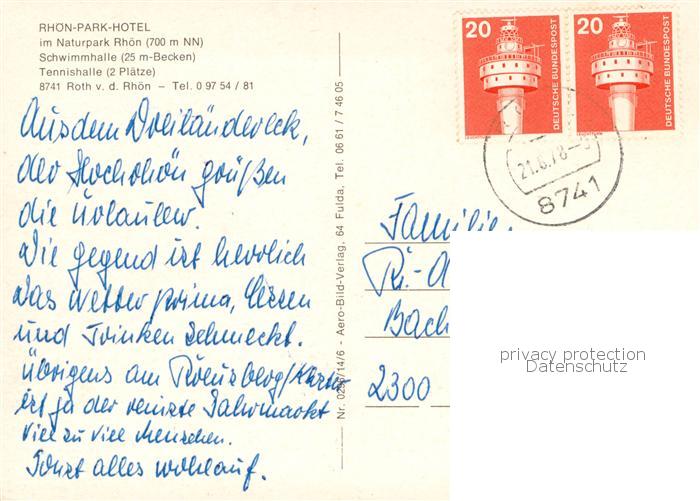 RHÖN-PARK-HOTEL
im Naturpark Rhön (700 m NN)
Schwimmhalle (25 m-Becken)
Tennishalle (2 Plätze)
8741 Roth v. d. Rhön – Tel. 0 97 54 / 81
Aus dem Dreiländereck,
der Hochrhön grüßen
die Urlauber.
Die Gegend ist herrlich
das Wetter prima, Essen
und Trinken schmeckt.
Übrigens am Kreuzberg/
ist ja der reinste Jahrmarkt
viel zu viele Menschen.
Sonst alles wohlauf.
Nr. 14/6 - Aero-Bild-Verlag, 64 Fulda, Tel. 06 61 / 7 46 05
20
DEUTSCHE BUNDESPOST
20
DEUTSCHE BUNDESPOST
21.6.78
8741
Familie
Bach
2300
privacy protection
Datenschutz